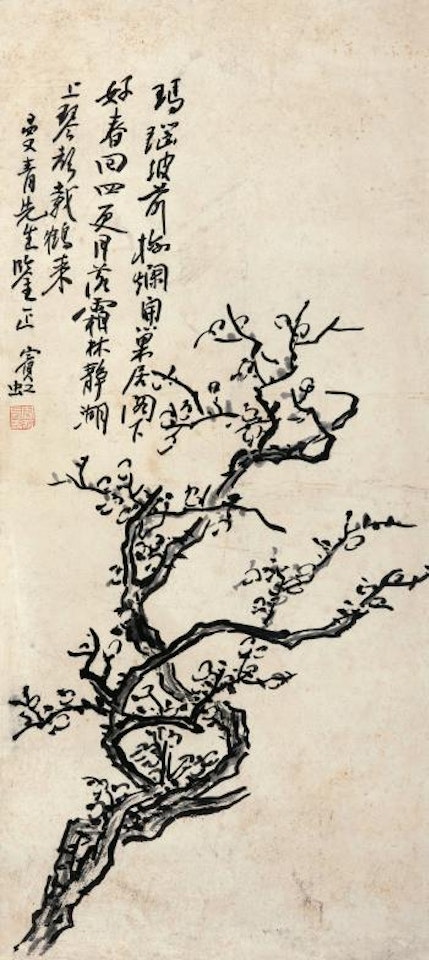 瑪瑙坡前梅爛開巢居閣下
好春回四更月落霜林静湖
上琴聲載鶴来
曼青先生鑒正 賓虹